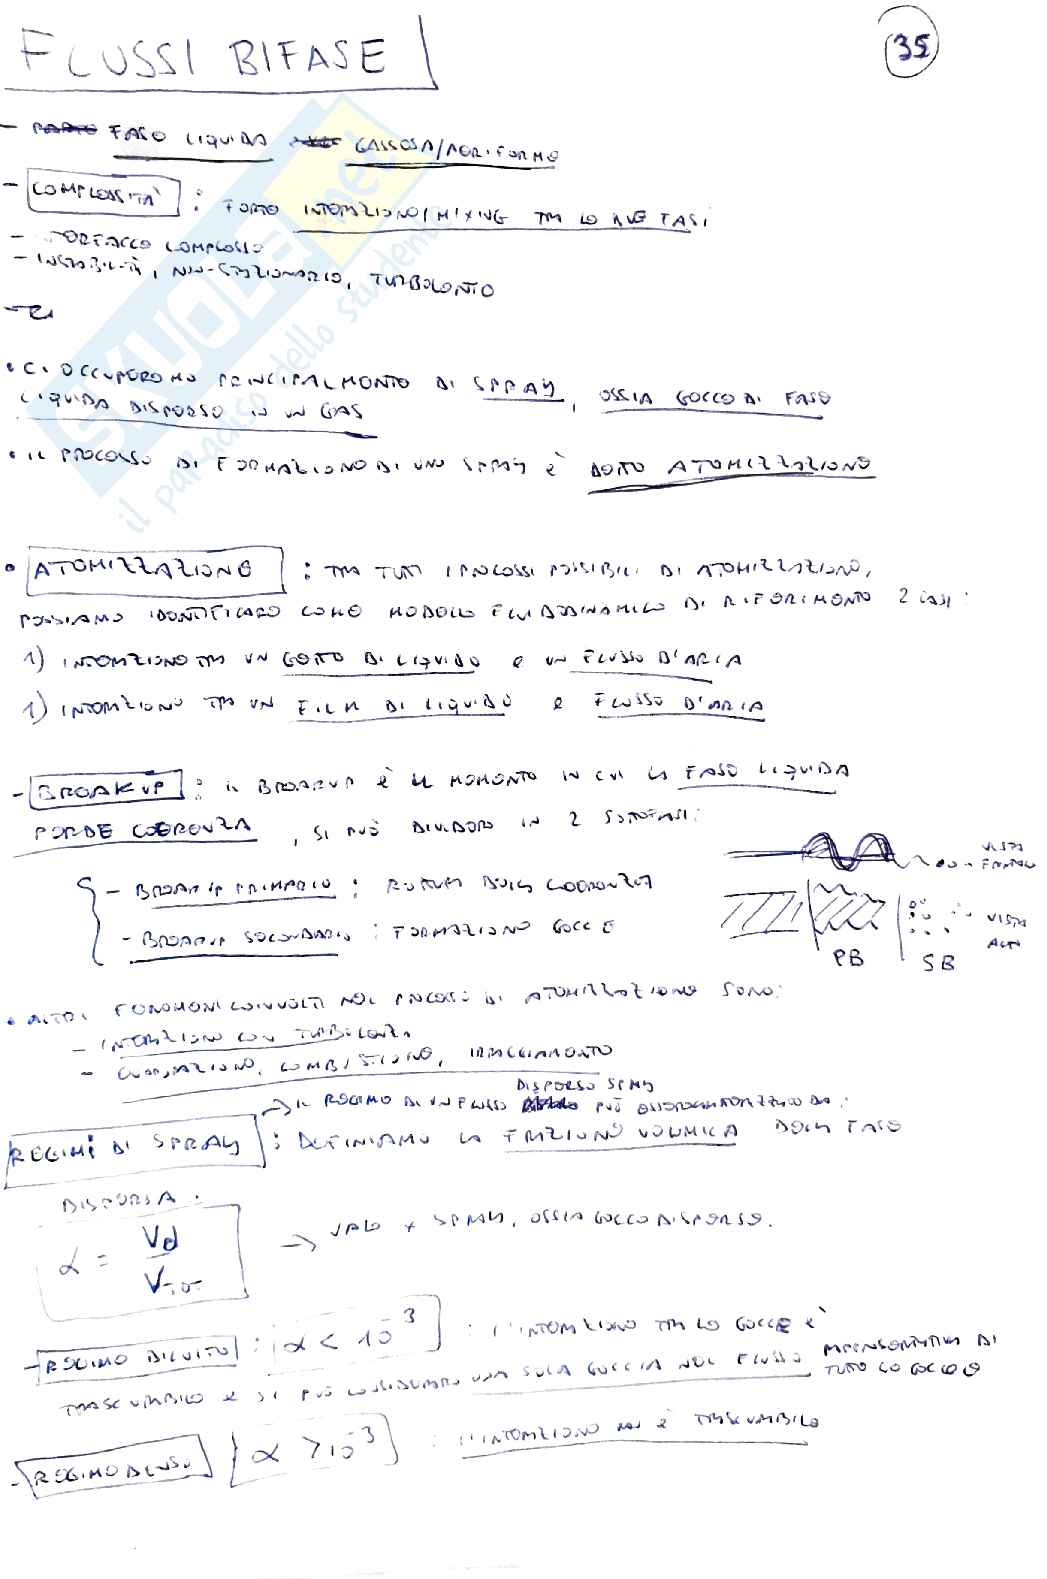 FLUSSI BIFASE
35
- FASE LIQUIDA GASSOSA/AERIFORME
- COMPLESSITÀ : FORTE INTERAZIONE/MIXING TRA LE DUE FASI
- INTERFACCE COMPLESSE
- INSTABILITÀ, NON-STAZIONARIO, TURBOLENTO
• CI OCCUPEREMO PRINCIPALMENTE DI SPRAY, OSSIA GOCCE DI FASE
LIQUIDA DISPERSE IN UN GAS
• IL PROCESSO DI FORMAZIONE DI UNO SPRAY È DETTO ATOMIZZAZIONE
• ATOMIZZAZIONE : TRA TUTTI I PROCESSI POSSIBILI DI ATOMIZZAZIONE,
POSSIAMO IDENTIFICARE COME MODELLO FLUIDODINAMICO DI RIFERIMENTO 2 CASI:
1) INTERAZIONE TRA UN GETTO DI LIQUIDO E UN FLUSSO D'ARIA
1) INTERAZIONE TRA UN FILM DI LIQUIDO E FLUSSO D'ARIA
- BREAKUP : IL BREAKUP È IL MOMENTO IN CUI LA FASE LIQUIDA
PERDE COERENZA, SI PUÒ DIVIDERE IN 2 SOTTOFASI:
- BREAKUP PRIMARIO : ROTTURA DELLA COERENZA
- BREAKUP SECONDARIO : FORMAZIONE GOCCE
VISTA
FRONTALE
VISTA
ALTA
PB SB
• ALTRI FENOMENI COINVOLTI NEL PROCESSO DI ATOMIZZAZIONE SONO:
- INTERAZIONE CON TURBOLENZA
- EVAPORAZIONE, COMBUSTIONE, IRRAGGIAMENTO
DISPERSO SPRAY
→ IL REGIME DI UN FLUSSO PUÒ ESSERE CARATTERIZZATO DA:
REGIMI DI SPRAY : DEFINIAMO LA FRAZIONE VOLUMICA DELLA FASE
DISPERSA:
α = Vd / VTOT → VALE X SPRAY, OSSIA GOCCE DISPERSE.
- REGIME DILUITO : α < 10^-3 : L'INTERAZIONE TRA LE GOCCE È
TRASCURABILE E SI PUÒ CONSIDERARE UNA SOLA GOCCIA NEL FLUSSO RAPPRESENTATIVA DI
TUTTE LE GOCCE
- REGIME DENSO α > 10^-3 : L'INTERAZIONE NON È TRASCURABILE
SKUOLA.net
il paradiso dello studente